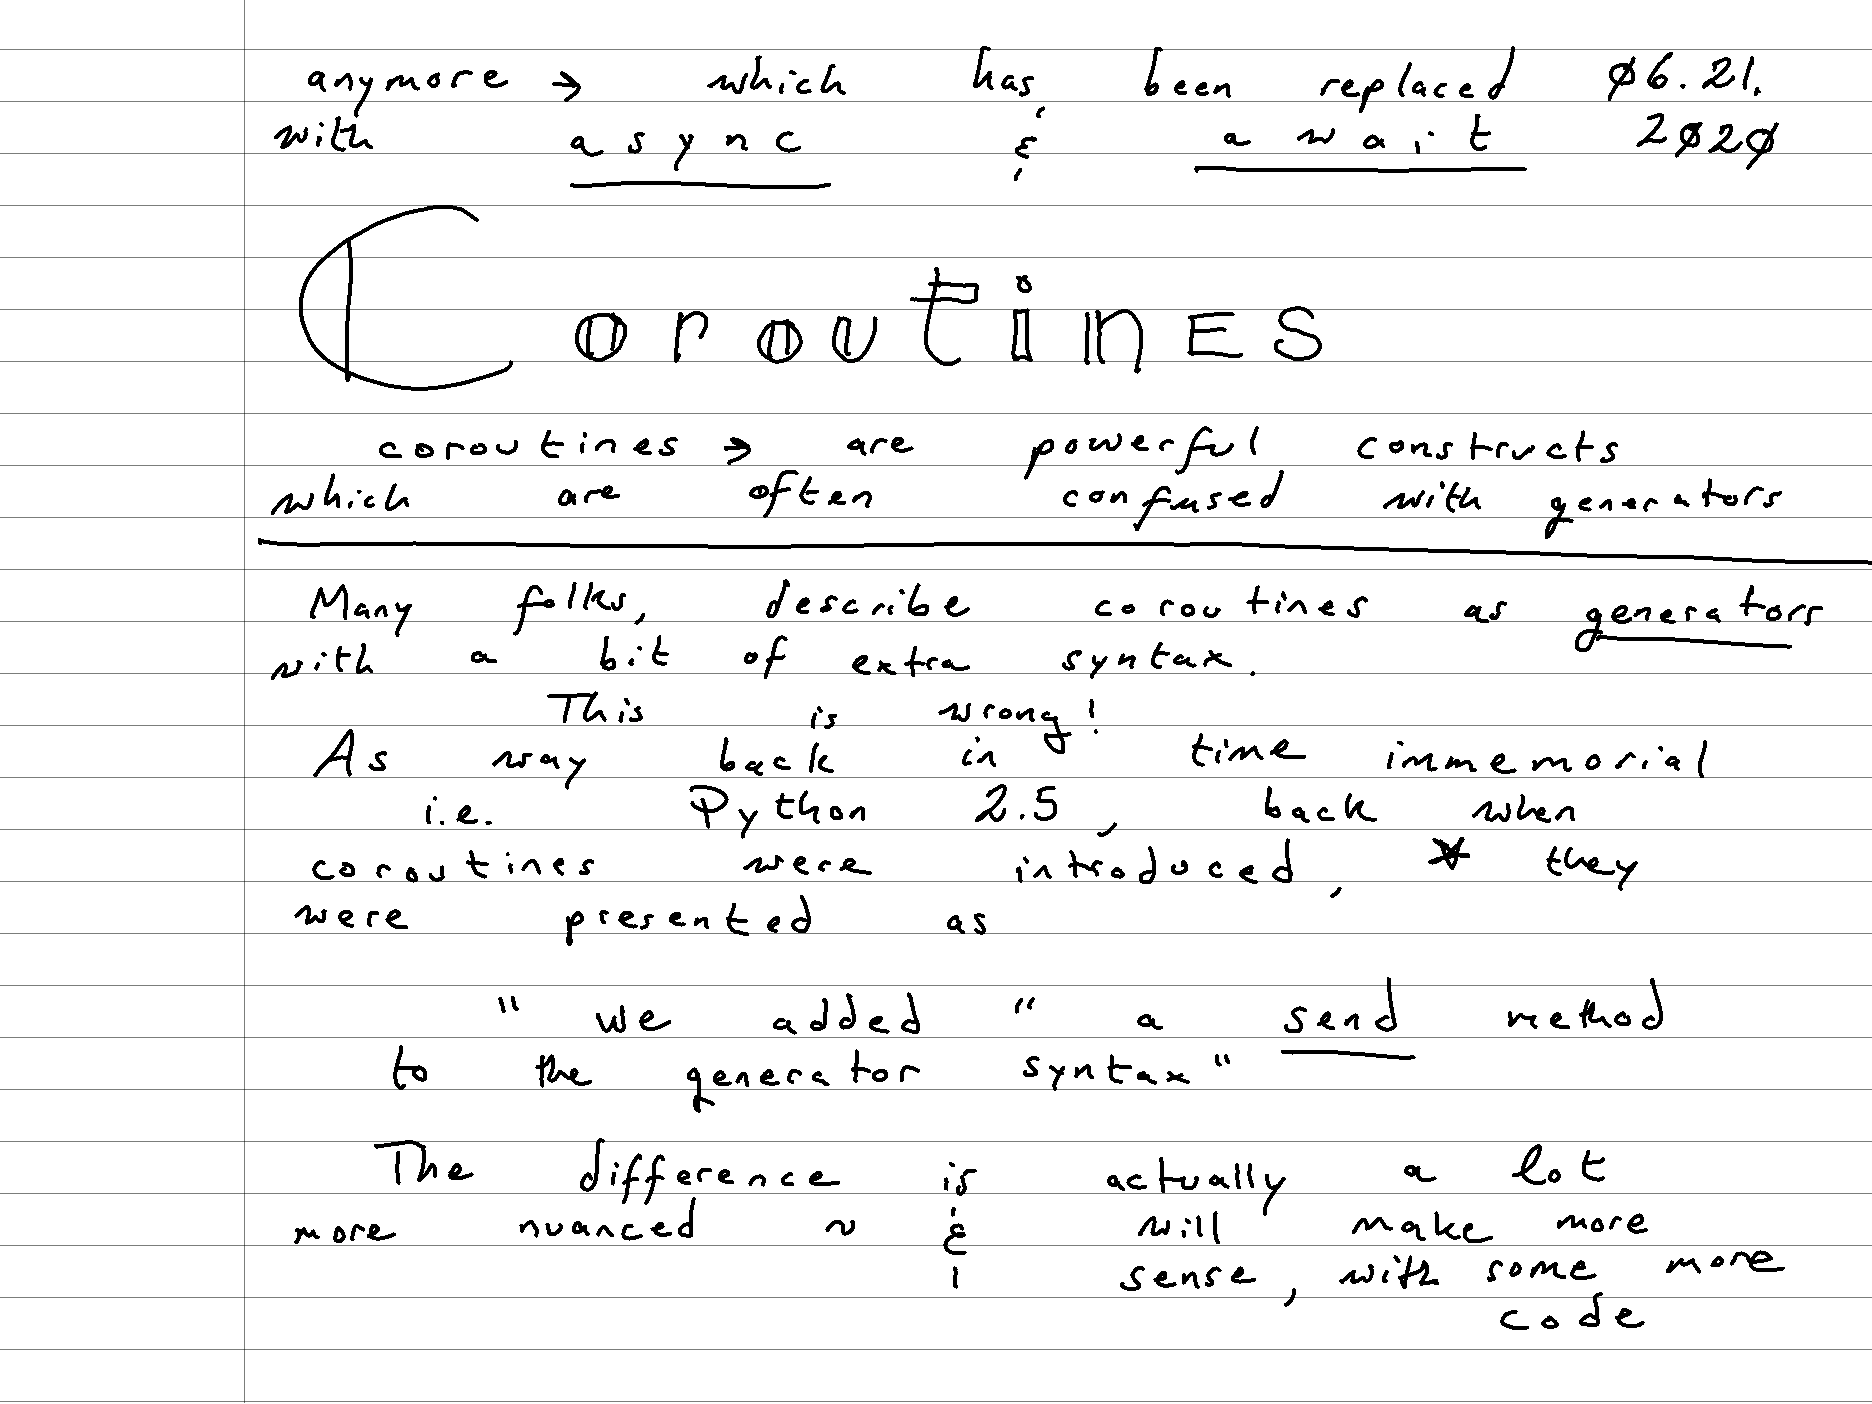 anymore → which has been replaced ø6.21.
with async & await 2ø2ø
CoroutinES
coroutines → are powerful constructs
which are often confused with generators
Many folks, describe coroutines as generators
with a bit of extra syntax.
This is wrong!
As way back in time immemorial
i.e. Python 2.5, back when
coroutines were introduced, * they
were presented as
" we added " a send method
to the generator syntax"
The difference is actually a lot
more nuanced ~ & will make more
sense, with some more
code